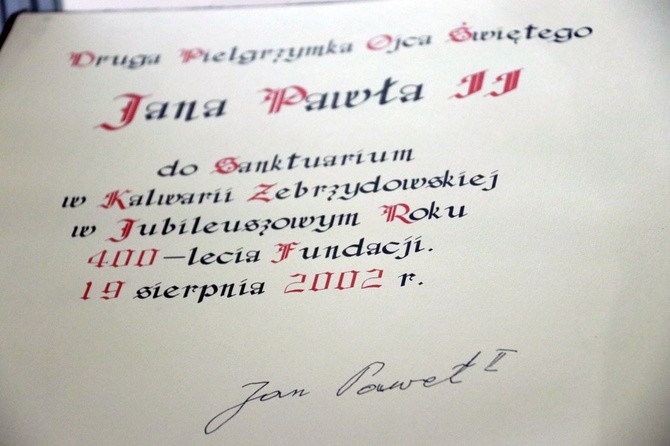 Druga Pielgrzymka Ojca Świętego
Jana Pawła II
do Sanktuarium
w Kalwarii Zebrzydowskiej
w Jubileuszowym Roku
400-lecia Fundacji.
19 sierpnia 2002 r.
Jan Paweł II